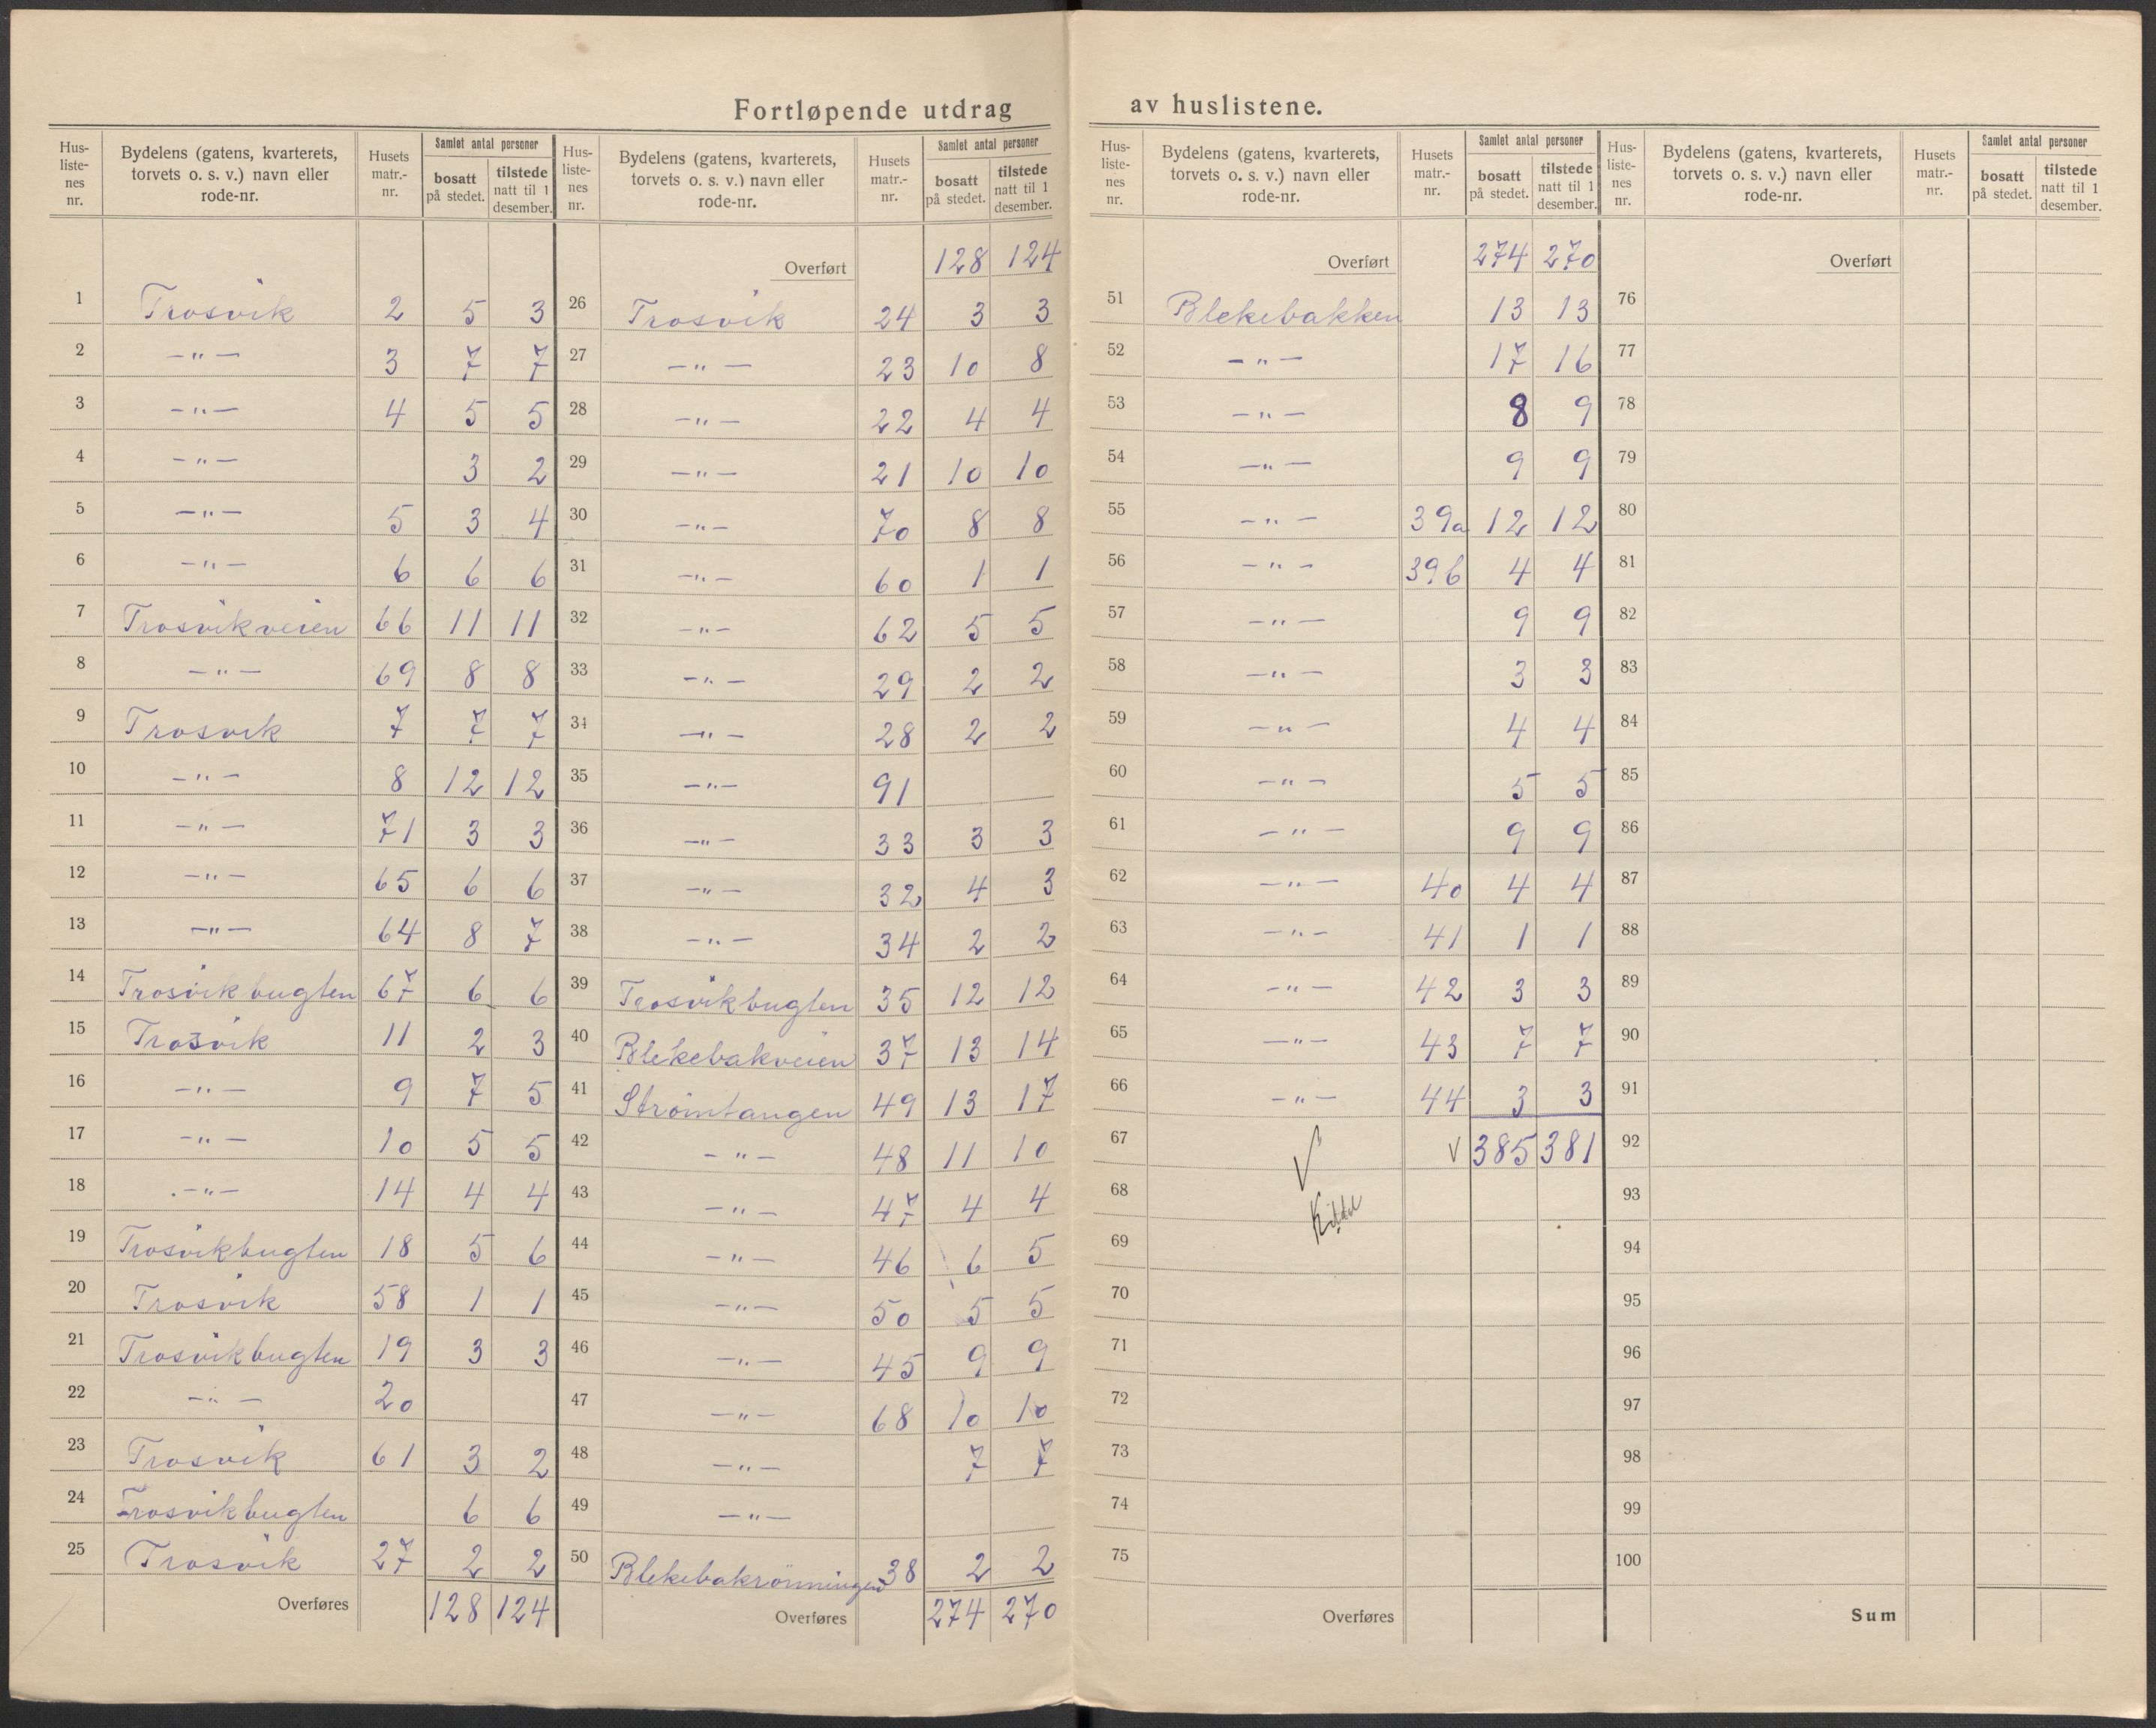 Fortløpende utdrag av huslistene.
Hus-liste-nes nr. Bydelens (gatens, kvarterets, torvets o. s. v.) navn eller rode-nr. Husets matr.-nr. Samlet antal personer bosatt på stedet. tilstede natt til 1 desember.
1 Trosvik 2 5 3
2 —"— 3 7 7
3 —"— 4 5 5
4 —"— 3 2
5 —"— 5 3 4
6 —"— 6 6 6
7 Trosvikveien 66 11 11
8 —"— 69 8 8
9 Trosvik 7 7 7
10 —"— 8 12 12
11 —"— 71 3 3
12 —"— 65 6 6
13 —"— 64 8 7
14 Trosvikbugten 67 6 6
15 Trosvik 11 2 3
16 —"— 9 7 5
17 —"— 10 5 5
18 —"— 14 4 4
19 Trosvikbugten 18 5 6
20 Trosvik 58 1 1
21 Trosvikbugten 19 3 3
22 —"— 20
23 Trosvik 61 3 2
24 Trosvikbugten 6 6
25 Trosvik 27 2 2
Overføres 128 124
Hus-liste-nes nr. Bydelens (gatens, kvarterets, torvets o. s. v.) navn eller rode-nr. Husets matr.-nr. Samlet antal personer bosatt på stedet. tilstede natt til 1 desember.
Overført 128 124
26 Trosvik 24 3 3
27 —"— 23 10 8
28 —"— 22 4 4
29 —"— 21 10 10
30 —"— 70 8 8
31 —"— 60 1 1
32 —"— 62 5 5
33 —"— 29 2 2
34 —"— 28 2 2
35 —"— 91
36 —"— 33 3 3
37 —"— 32 4 3
38 —"— 34 2 2
39 Trosvikbugten 35 12 12
40 Blekebakveien 37 13 14
41 Strömtangen 49 13 17
42 —"— 48 11 10
43 —"— 47 4 4
44 —"— 46 6 5
45 —"— 50 5 5
46 —"— 45 9 9
47 —"— 68 10 10
48 —"— 7 7
49 —"—
50 Blekebakrönningen 38 2 2
Overføres 274 270
Hus-liste-nes nr. Bydelens (gatens, kvarterets, torvets o. s. v.) navn eller rode-nr. Husets matr.-nr. Samlet antal personer bosatt på stedet. tilstede natt til 1 desember.
Overført 274 270
51 Blekebakken 13 13
52 —"— 17 16
53 —"— 8 9
54 —"— 9 9
55 —"— 39a 12 12
56 —"— 39b 4 4
57 —"— 9 9
58 —"— 3 3
59 —"— 4 4
60 —"— 5 5
61 —"— 9 9
62 —"— 40 4 4
63 —"— 41 1 1
64 —"— 42 3 3
65 —"— 43 7 7
66 —"— 44 3 3
67 √ √ 385 381
68
69
70
71
72
73
74
75
Overføres
Hus-liste-nes nr. Bydelens (gatens, kvarterets, torvets o. s. v.) navn eller rode-nr. Husets matr.-nr. Samlet antal personer bosatt på stedet. tilstede natt til 1 desember.
Overført
76
77
78
79
80
81
82
83
84
85
86
87
88
89
90
91
92
93
94
95
96
97
98
99
100
Sum